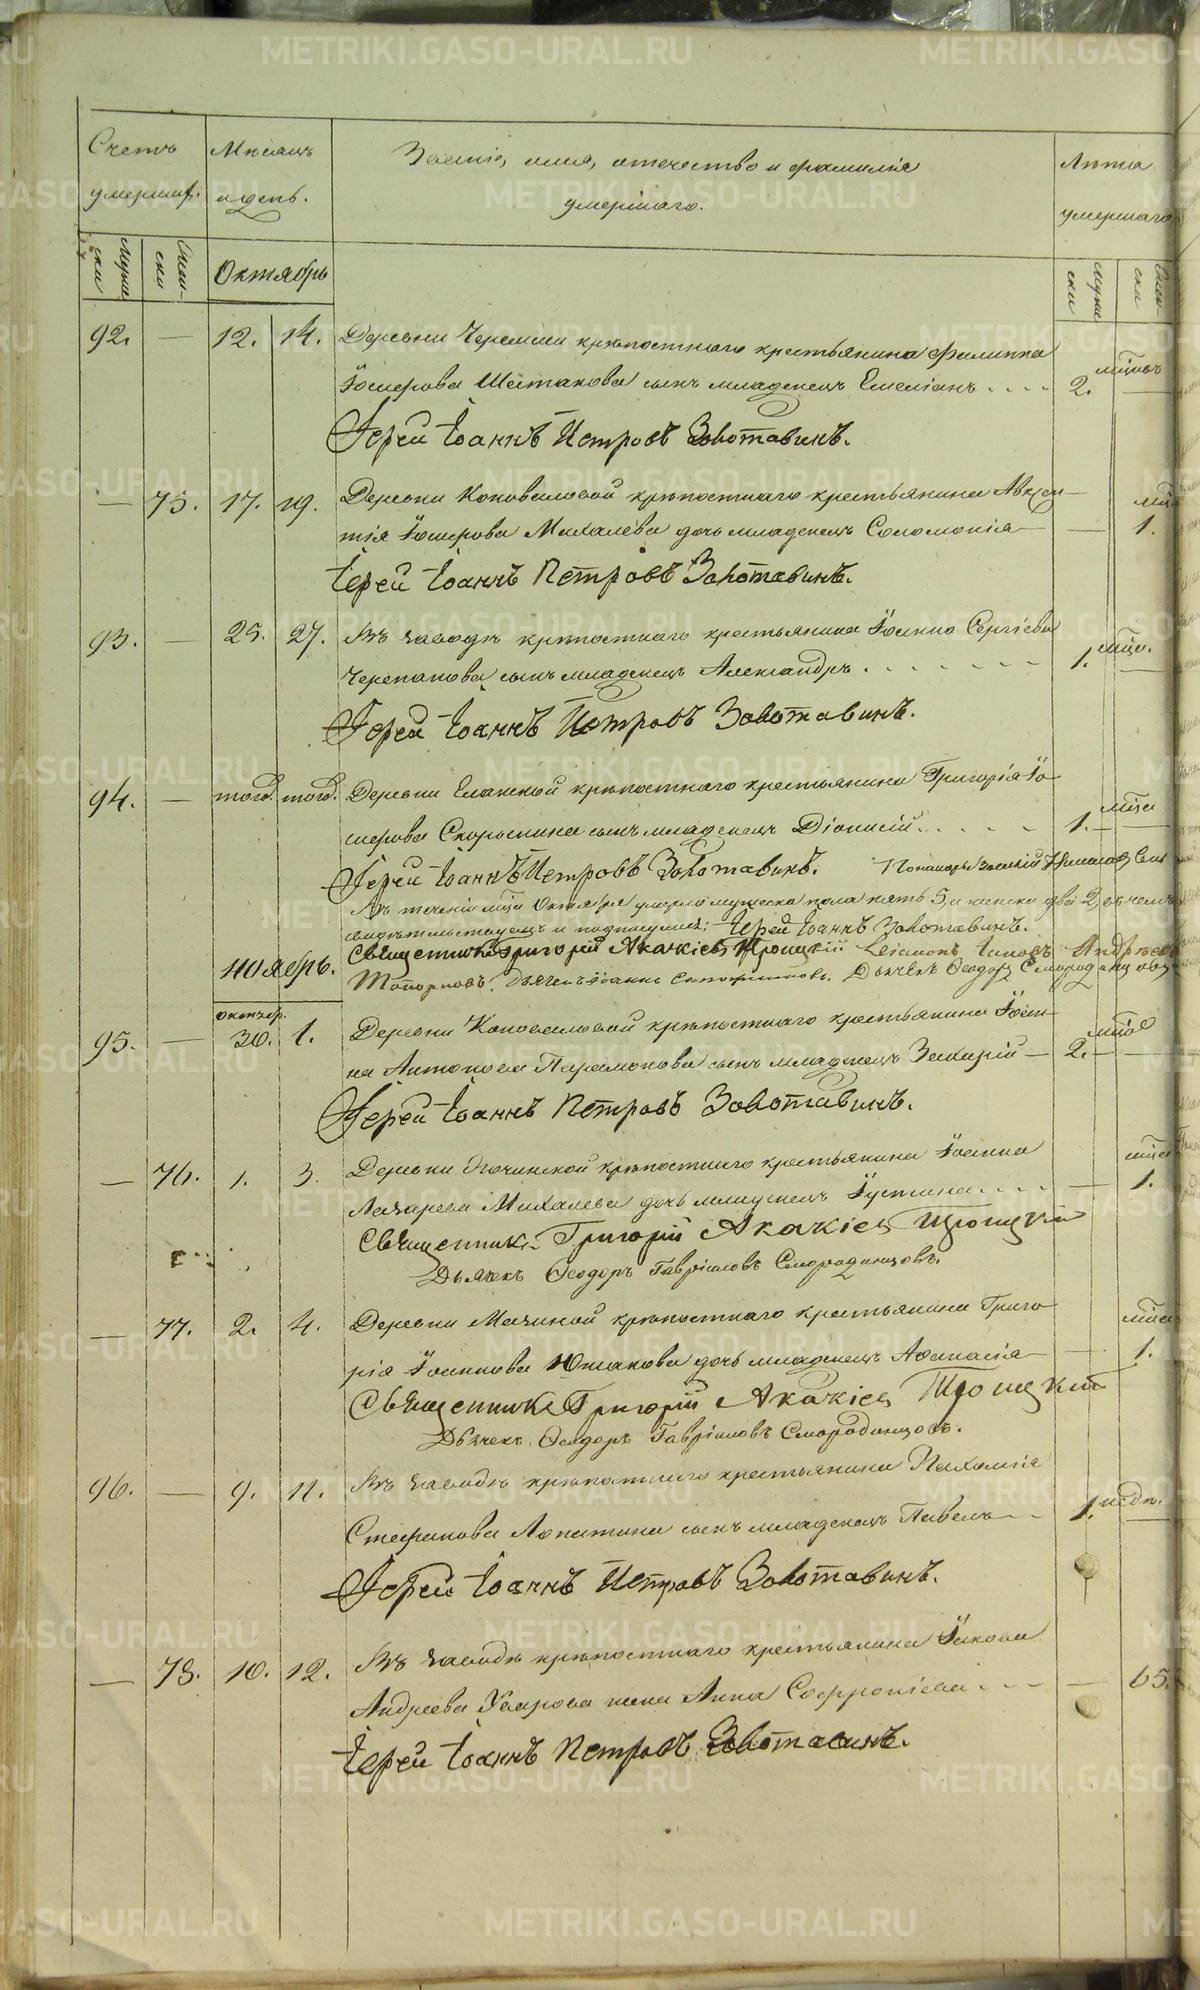 Счетъ умершихъ.
Мѣсяцъ и день.
Званіе, имя, отечество и фамилія
умершаго.
Лѣта
умершаго
Муже-
ски
Жен-
ски
Октябрь
Муже-
ски
Жен-
ски
92. — 12. 14. Деревни Черемши крѣпостнаго крестьянина Филиппа
Іосифова Шестакова сынъ младенецъ Емеліанъ . . . . 2. мѣсяцъ
Іерей Іоаннъ Петровъ Золотавинъ.
— 75. 17. 19. Деревни Коноваловой крѣпостнаго крестьянина Авксен-
тія Іосифова Михалева дочь младенецъ Соломонія — — 1.
Іерей Іоаннъ Петровъ Золотавинъ.
93. — 25. 27. Въ заводѣ крѣпостнаго крестьянина Іоанна Сергіева
Черепанова сынъ младенецъ Александръ . . . . . . . 1. мѣся.
Іерей Іоаннъ Петровъ Золотавинъ.
94. — тогож. тогож. Деревни Еланской крѣпостнаго крестьянина Григорія Іо-
сифова Скорынина сынъ младенецъ Діонисій . . . . . 1. — мѣся
Іерей Іоаннъ Петровъ Золотавинъ. Пономарь Василій
Въ теченіи мѣся Октября умерло мужеска пола пять 5, и женска два 2, въ чемъ
свидѣтельствуемъ и подписуемся: Іерей Іоаннъ Золотавинъ.
Священникъ Григорій Акакіевъ Троицкій Андреевъ
Топорковъ. Дьячекъ Іоаннъ Дьячекъ Ѳеодоръ Смородинцовъ
Ноябрь.
октябр.
95. — 30. 1. Деревни Коноваловой крѣпостнаго крестьянина Іоан-
на Антонова Парамонова сынъ младенецъ Захарій — 2. — мѣся
Іерей Іоаннъ Петровъ Золотавинъ.
— 76. 1. 3. Деревни крѣпостнаго крестьянина Іоанна
Лазарева Михалева дочь младенецъ Іустина . . . . — 1. мѣся
Священникъ Григорій Акакіевъ Троицкій
Дьячекъ Ѳеодоръ Гавріиловъ Смородинцовъ.
— 77. 2. 4. Деревни Мечиной крѣпостнаго крестьянина Григо-
рія Іоаннова Южакова дочь младенецъ Аѳанасія — — 1. мѣся
Священникъ Григорій Акакіевъ Троицкій
Дьячекъ Ѳеодоръ Гавріиловъ Смородинцовъ.
96. — 9. 11. Въ заводѣ крѣпостнаго крестьянина Пахомія
Стефанова Лопатина сынъ младенецъ Павелъ — — 1. недѣ.
Іерей Іоаннъ Петровъ Золотавинъ.
— 78. 10. 12. Въ заводѣ крѣпостнаго крестьянина Іакова
Андреева Уварова жена Анна Софроніева . — — — 65.
Іерей Іоаннъ Петровъ Золотавинъ.
METRIKI.GASO-URAL.RU